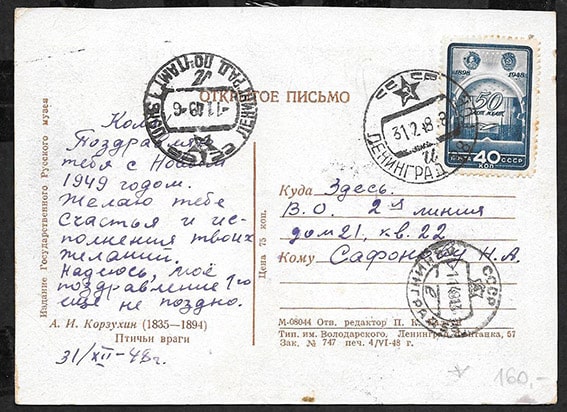 Издание Государственного Русского музея
Коля
Поздравляю
тебя с Новым
1949 годом.
Желаю тебе
счастья и ис-
полнения твоих
желаний.
Надеюсь, моё
поздравление 1го
ещё не поздно.
А. И. Корзухин (1835—1894)
Птичьи враги
31/XII-48г.
ОТКРЫТОЕ ПИСЬМО
ЛЕНИНГРАД. ПОЧТАМТ
-1.1.49-6
СССР
ЛЕНИНГРАД
31.12.48
1898 1948
50
ПОЧТА 40 СССР
КОП
Цена 75 коп.
Куда Здесь.
В.О. 2ая линия
дом 21, кв. 22
Кому Сафонову Н.А.
СССР
ЛЕНИНГРАД
М-08044 Отв. редактор П. К.
Тип. им. Володарского. Ленинград, Фонтанка, 57
Зак. № 747 печ. 4/VI-48 г.
160,-